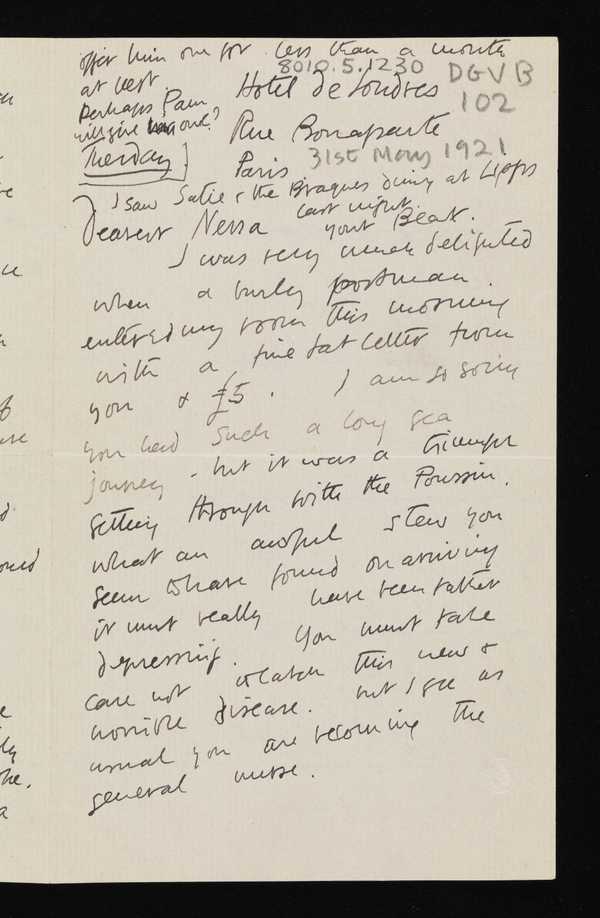 offer him one for less than a month
at least.
8010.5.1230
DGVB
102
Perhaps Pam
will give him one?
Hotel de Londres
Rue Bonaparte
Tuesday
Paris
31st May 1921
I saw Satie & the Braques dining at Lipps
last night.
your Bear.
Dearest Nessa
I was very much delighted
when a burly postman
entered my room this morning
with a fine fat letter from
you & £5. I am so sorry
you had such a long sea
journey - but it was a triumph
getting through with the Poussin.
what an awful stew you
seem to have found on arriving
it must really have been rather
depressing. You must take
care not to catch this new &
horrible disease. but I see as
usual you are becoming the
general nurse.